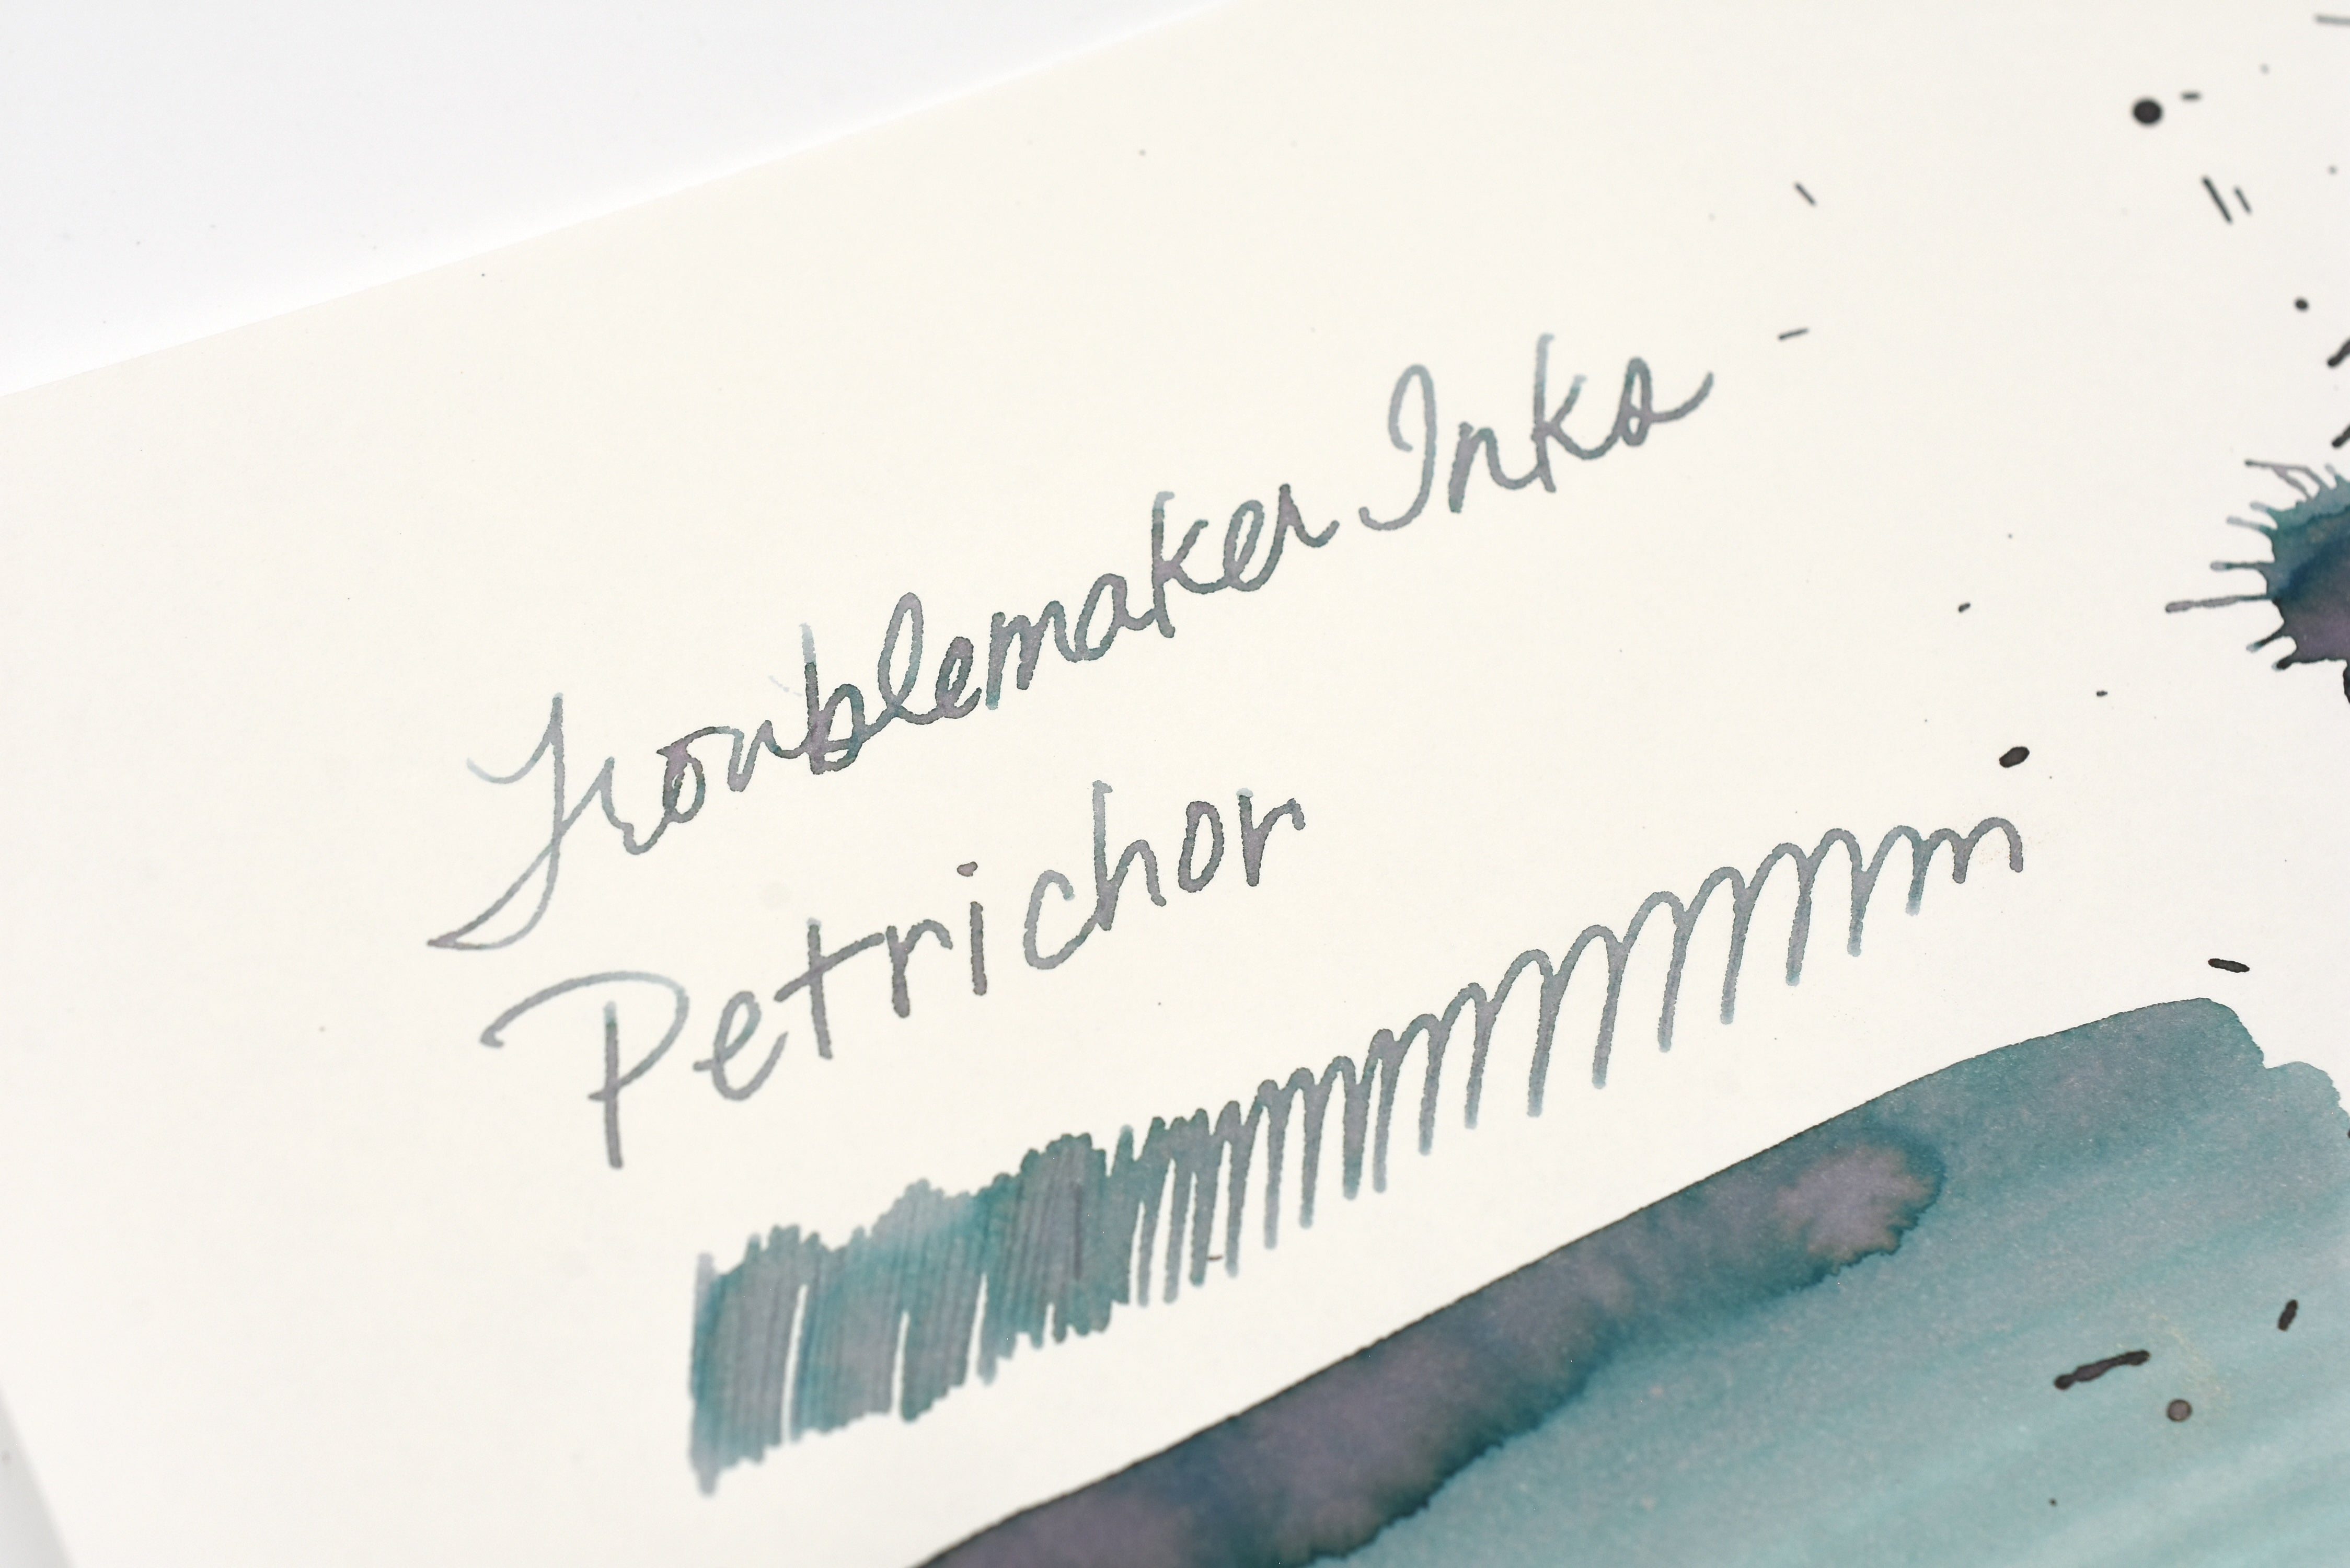 Troublemaker Inks
Petrichor